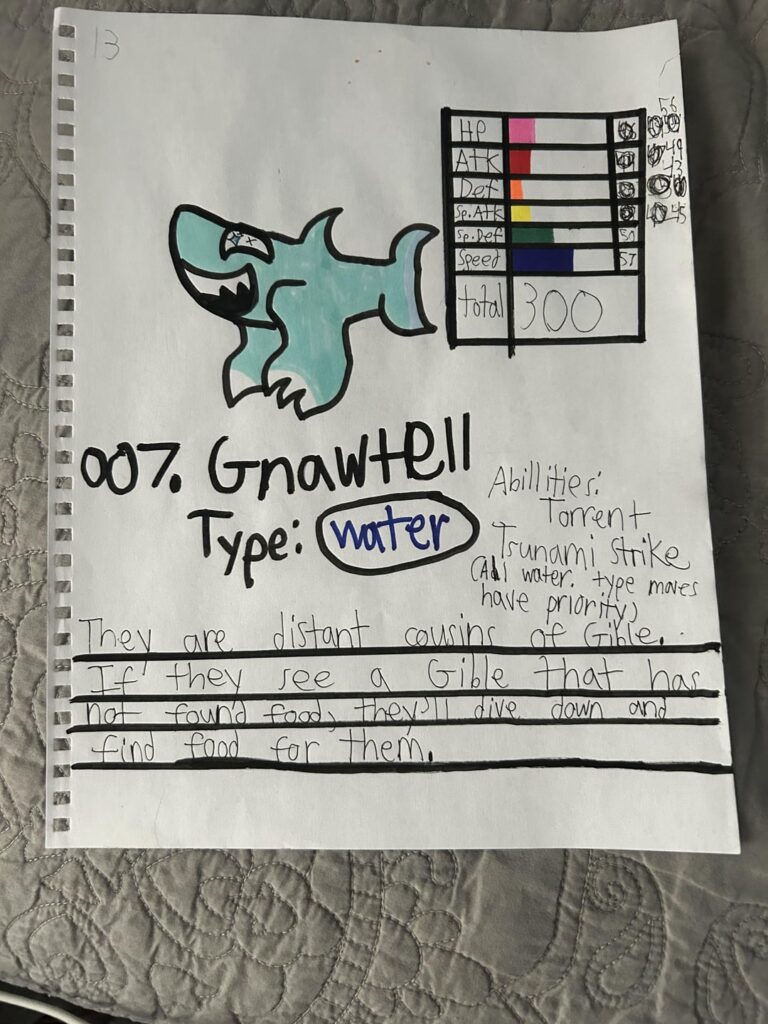 13
56
HP
Atk 49
Def 43
Sp.Atk 45
Sp.Def 50
Speed 57
total 300
007. Gnawtell
Type: water
Abillities:
Torrent
Tsunami Strike
(All water. type moves
have priority)
They are distant cousins of Gible.
If they see a Gible that has
not found food, they'll dive down and
find food for them.